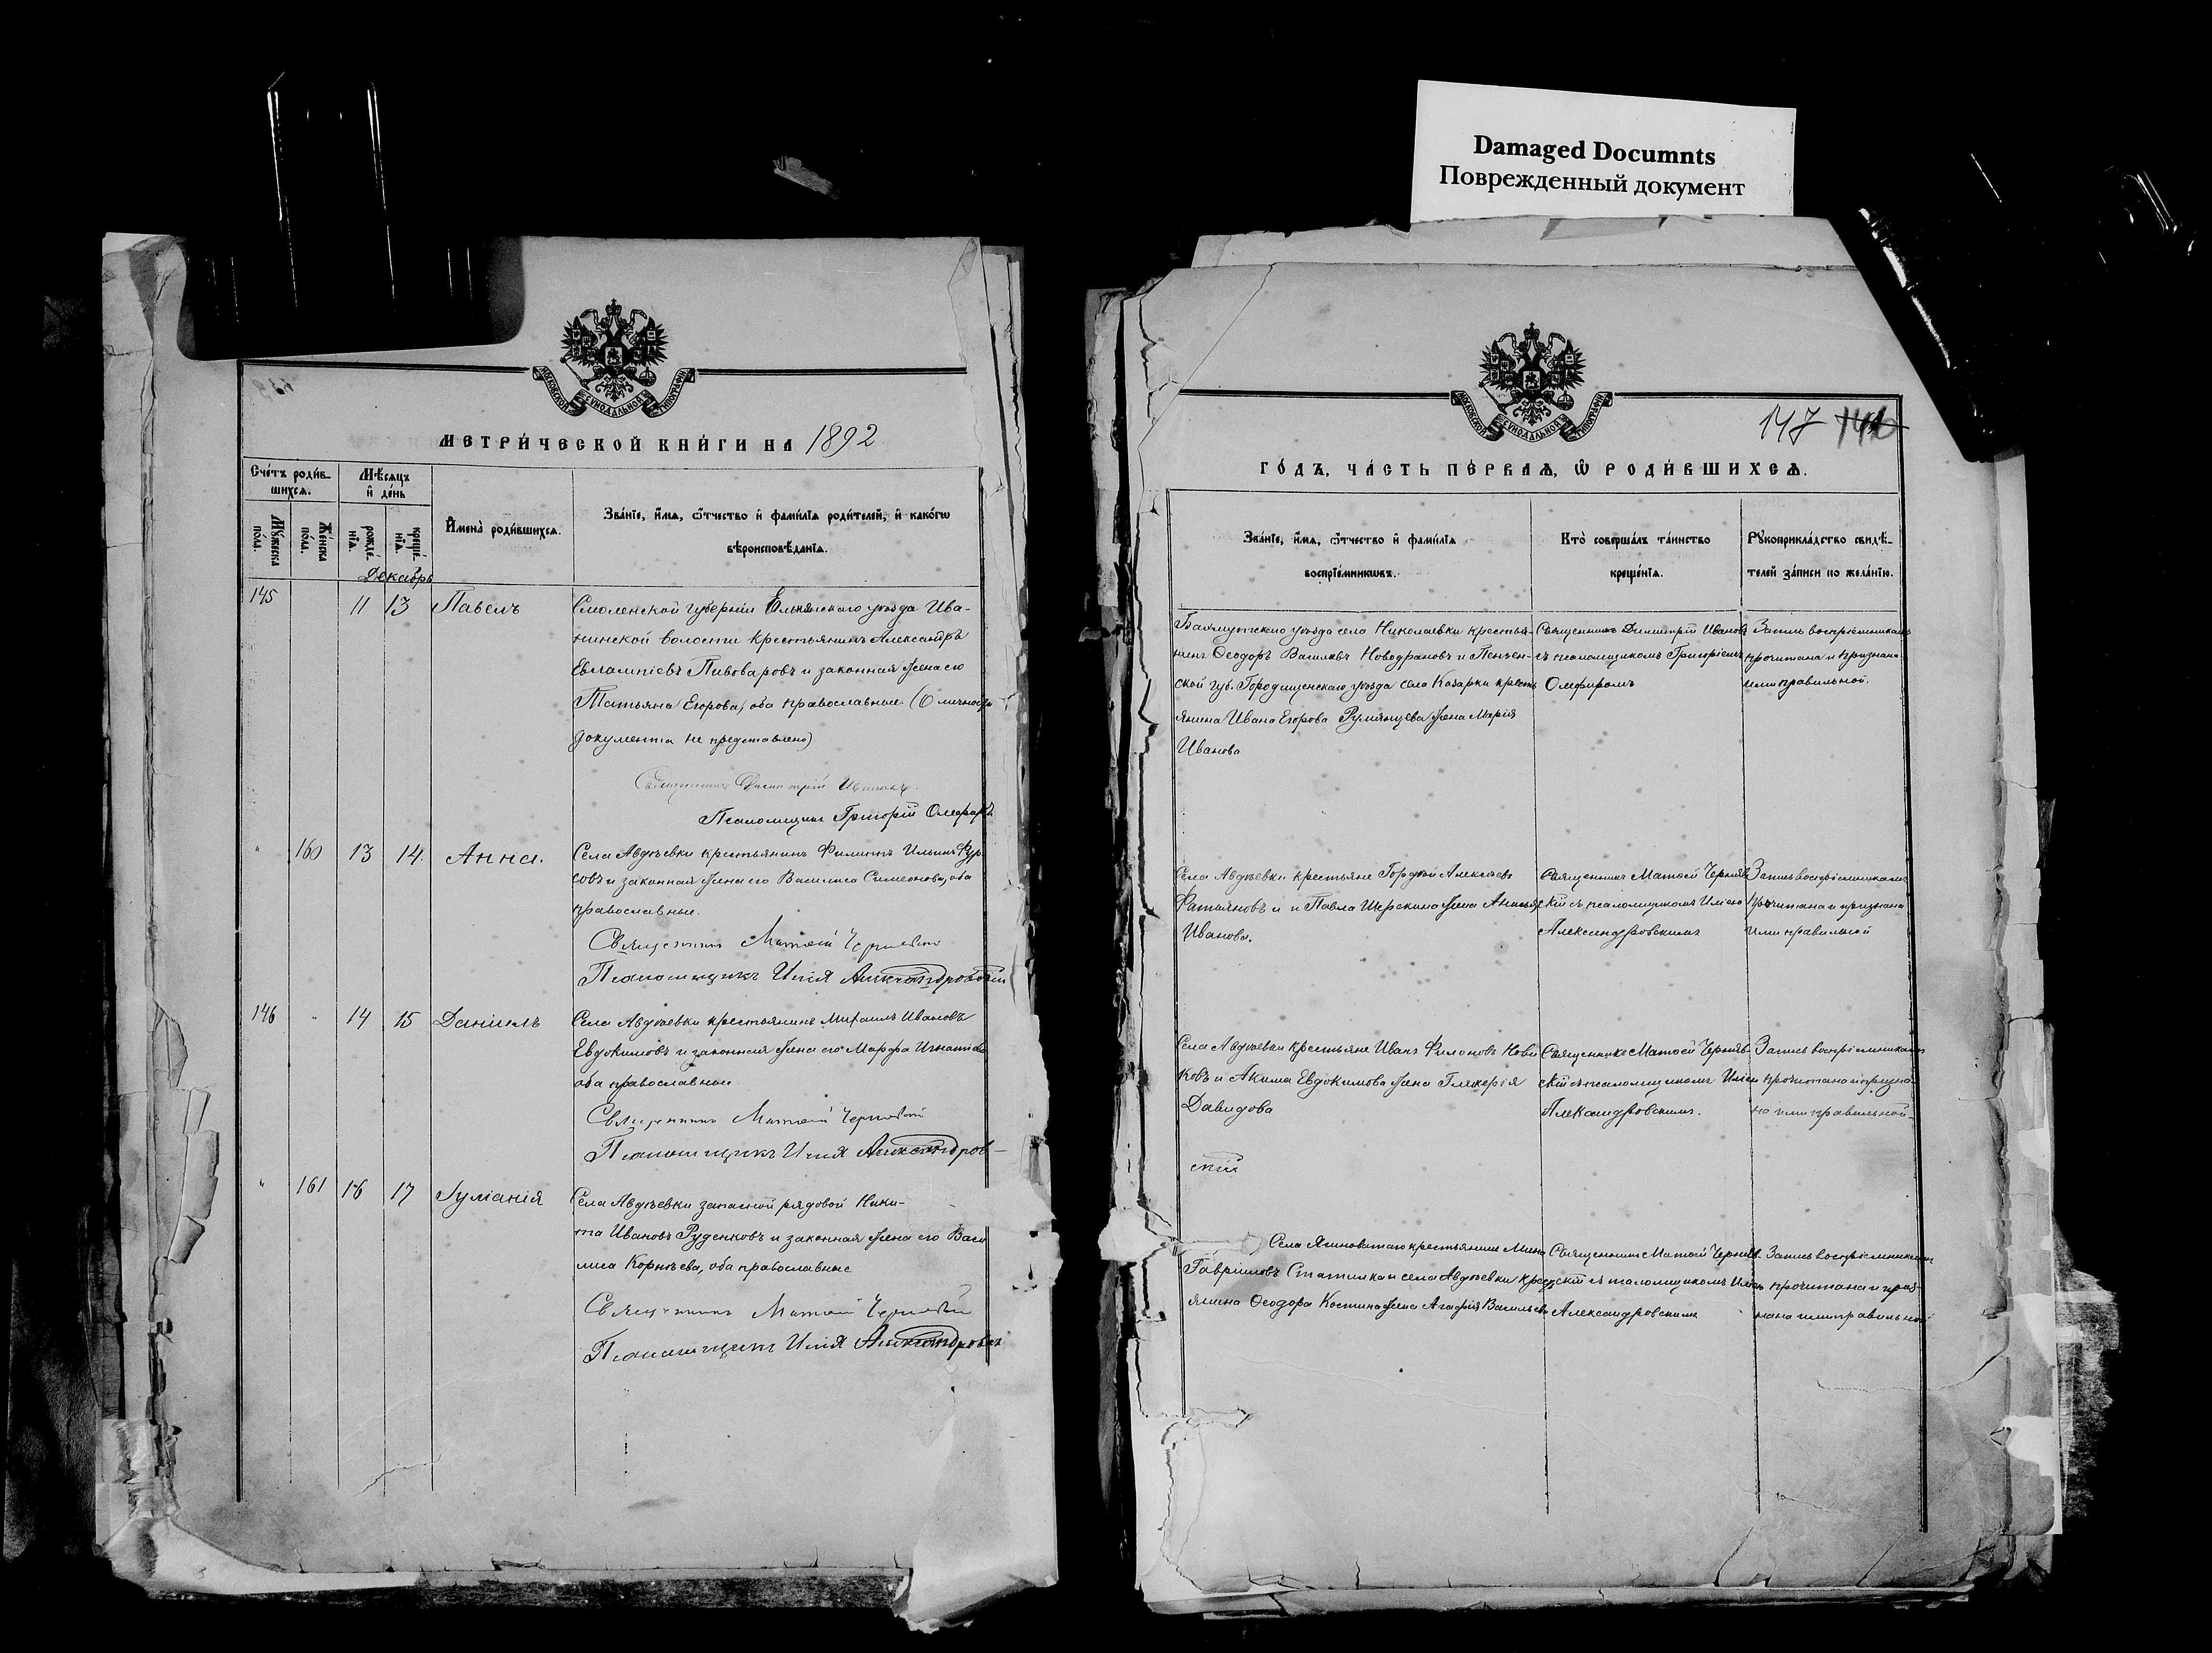 Damaged Documnts
Поврежденный документ
МОСКОВСКОЙ СУНОДАЛЬНОЙ ТИПОГРАФІИ
МЕТРИ́ЧЕСКОЙ КНИ́ГИ НА 1892
Сче́тъ роди́в-
шихсѧ.
Мѣ́сѧцъ
и҆ де́нь
Мꙋ́жеска
по́ла.
Же́нска
по́ла.
рожде́-
нїѧ.
креще́-
нїѧ.
И҆мена̀ роди́вшихсѧ.
Зва́нїе, и҆́мѧ, ѻ҆́тчество и҆ фами́лїѧ роди́телей, и҆ како́гѡ
вѣроисповѣ́данїѧ.
Декабрь
145 11 13 Павелъ
Смоленской губерніи Ельнинскаго уѣзда Ива-
нинской волости крестьянинъ Александръ
Евлампіевъ Пивоваровъ и законная жена его
Татьяна Егорова, оба православные. (О личности
документа не представлено)
Священникъ Димитрій Ивановъ
Псаломщикъ Григорій
" 160 13 14. Анна.
Села Авдѣевки крестьянинъ Филиппъ Ильинъ Фур-
совъ и законная жена его Василиса Симеонова, оба
православные.
Священникъ Матѳей Чернявскій
Псаломщикъ Илія Александровскій
146 " 14 15 Даніилъ
Села Авдѣевки крестьянинъ Михаилъ Ивановъ
Евдокимовъ и законная жена его Марфа Игнатіева
оба православные
Священникъ Матѳей Чернявскій
Псаломщикъ Илія Александров-
" 161 16 17 Іуліанія
Села Авдѣевки запасной рядовой Ники-
та Ивановъ Руденковъ и законная жена его Васи
лиса Корнѣева, оба православные
Священникъ Матѳей Чернявскій
Псаломщикъ Илія Александровскій
МОСКОВСКОЙ СУНОДАЛЬНОЙ ТИПОГРАФІИ
147
ГО́ДЪ, ЧА́СТЬ ПЕ́РВАѦ, Ѡ҆ РОДИ́ВШИХСѦ.
Зва́нїе, и҆́мѧ, ѻ҆́тчество и҆ фами́лїѧ
воспрїе́мникѡвъ.
Кто̀ соверша́лъ та́инство
креще́нїѧ.
Рꙋкоприкла́дство свидѣ́-
телей за́писи по жела́нїю.
Бахмутскаго уѣзда села Николаевки крестья-
нинъ Ѳеодоръ Васильевъ и Пензен-
ской губ. Городищенскаго уѣзда села Кабарки крестъ
янина Ивана Егорова Румянцева жена Марія
Иванова
Священникъ Димитрій Ивановъ
съ псаломщикомъ Григоріемъ
Запись воспріемникамъ
прочитана и признана
ими правильной.
Села Авдѣевки крестьяне Гордѣй Алексѣевъ
Фатьяновъ и Павла жена
Иванова.
Священникъ Матѳей Чернявс
кій съ псаломщикомъ Иліею
Александровскимъ
Запись воспріемникамъ
прочитана и признана
ими правильной
Села Авдѣевки крестьяне Иванъ Филоновъ Нови
ковъ и Акима Евдокимова жена Гликерія
Давидова
скій
Священникъ Матѳей Чернявс
кій съ псаломщикомъ Иліею
Александровскимъ.
Запись воспріемникамъ
прочитана и призна-
на ими правильной.
Села Ясиноватаго крестьянинъ Мина
Гавріиловъ и села Авдѣевки крест
янина Ѳеодора Костина жена Агафія Васильева
Священникъ Матѳей Чернявс
кій съ псаломщикомъ Иліею
Александровскимъ
Запись воспріемникамъ
прочитана и приз-
нана ими правильной